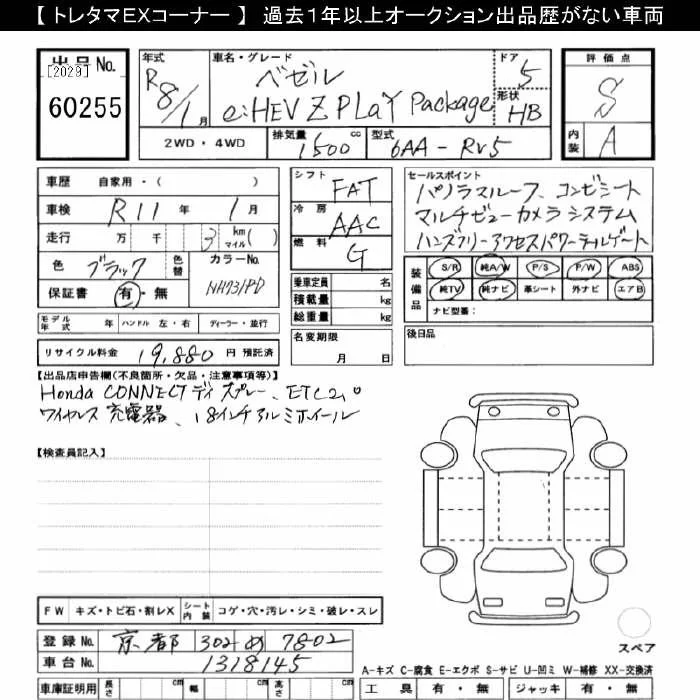 【 トレタマEXコーナー 】 過去1年以上オークション出品歴がない車両
出品 No. [2029] 60255
年式 R8/1月
車名・グレード ベゼル e:HEV Z PLaY Package
ドア 5
形状 HB
評価点 S
内装 A
2WD・4WD 排気量 1500 cc 型式 6AA-RV5
車歴 自家用・( )
車検 R11 年 1 月
走行 万 千 3 km マイル ( )
色 ブラック 色替 カラーNo. NH731PD
保証書 有・無
シフト FAT
冷房 AAC
燃料 G
乗車定員 名
積載量 kg
総重量 kg
名変期限 月 日
セールスポイント
パノラマルーフ、コンビシート
マルチビューカメラシステム
ハンズフリーアクセスパワーテールゲート
装備品 S/R 純A/W P/S P/W ABS
純TV 純ナビ 革シート 外ナビ エアB
ナビ型番:
後日品
モデル年式 年 ハンドル 左・右 ディーラー・並行
リサイクル料金 19,880 円 預託済
【出品店申告欄(不良箇所・欠品・注意事項等)】
Honda CONNECTディスプレー、ETC2.0
ワイヤレス充電器、18インチアルミホイール
【検査員記入】
FW キズ・トビ石・割レX シート内装 コゲ・穴・汚レ・シミ・破レ・スレ
登録 No. 京都 302 め 7802
車台 No. 1318145
車庫証明用 長さ cm 幅 cm 高さ cm
スペア
A-キズ C-腐食 E-エクボ S-サビ U-凹ミ W-補修 XX-交換済
工具 有・無 ジャッキ 有・無